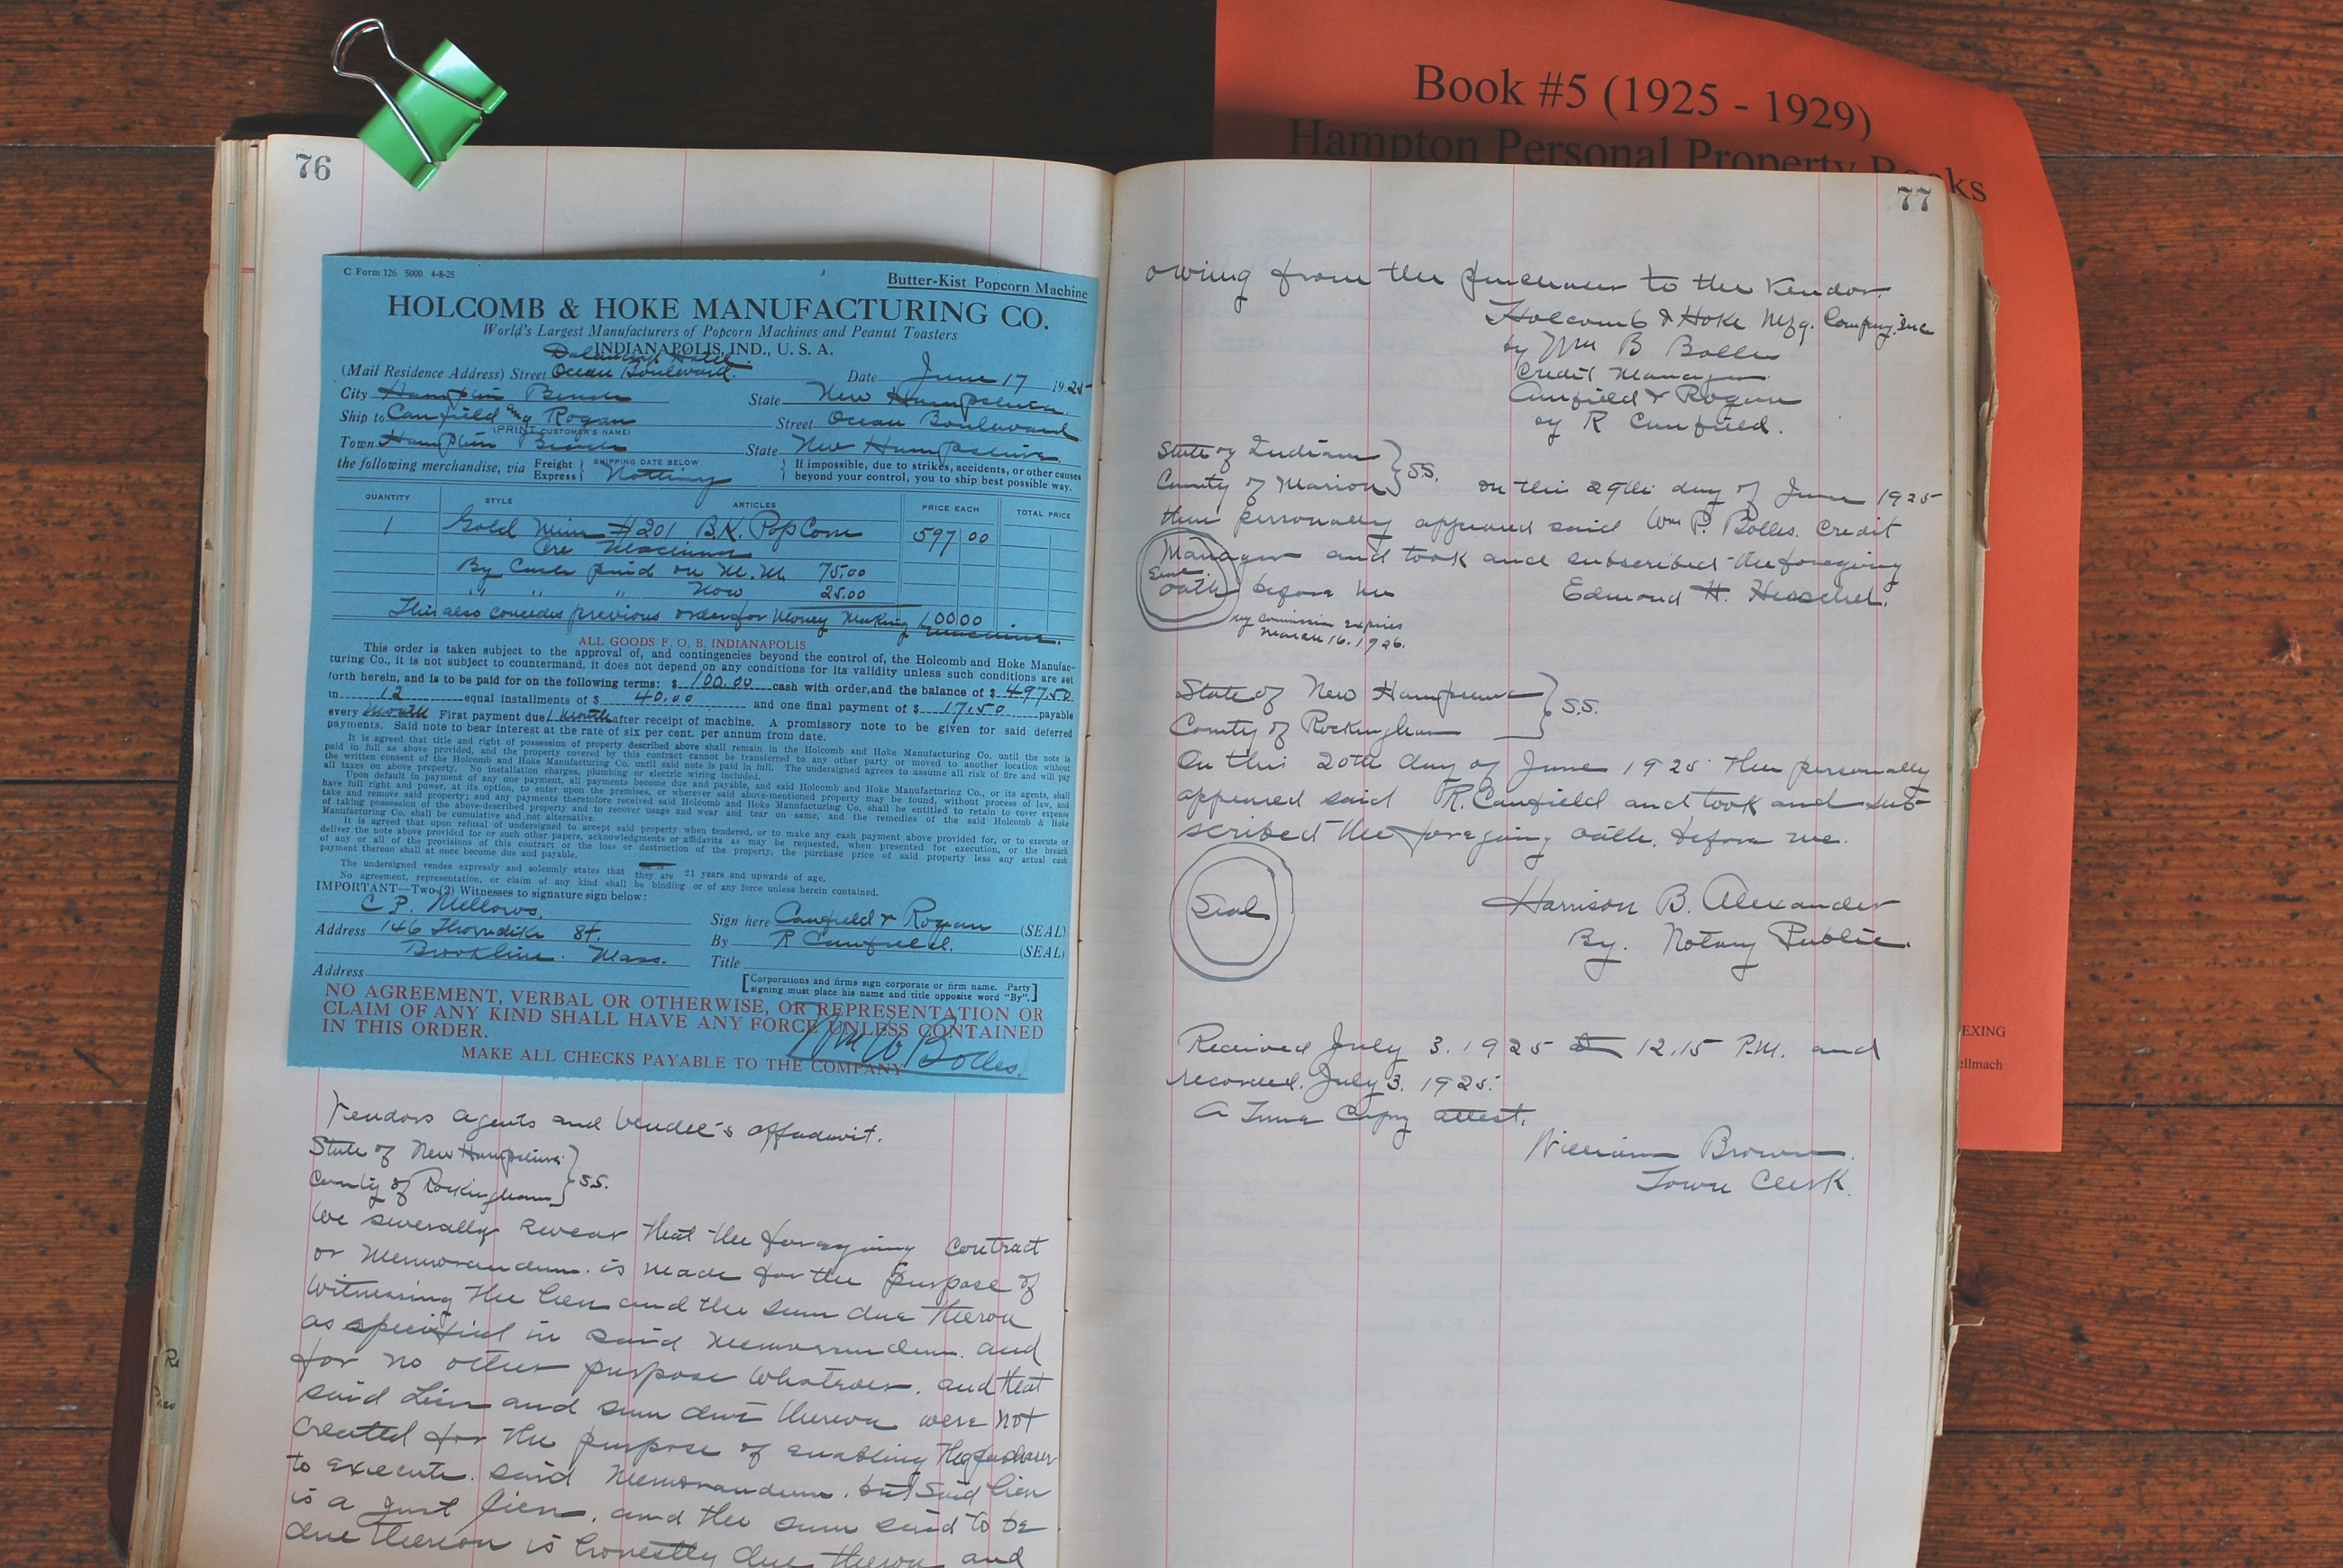 Book #5 (1925 - 1929)
Hampton Personal Property Books
EXING
ellmach
76
C Form 126 5000 4-8-25
Butter-Kist Popcorn Machine
HOLCOMB & HOKE MANUFACTURING CO.
World's Largest Manufacturers of Popcorn Machines and Peanut Toasters
INDIANAPOLIS, IND., U. S. A.
Hotel
(Mail Residence Address) Street Ocean Boulevard. Date June 17 1925
City Hampton Beach State New Hampshire.
Ship to Canfield and Rogan Street Ocean Boulevard
(PRINT CUSTOMER'S NAME)
Town Hampton Beach State New Hampshire.
the following merchandise, via Freight Express SHIPPING DATE BELOW If impossible, due to strikes, accidents, or other causes
beyond your control, you to ship best possible way.
QUANTITY STYLE ARTICLES PRICE EACH TOTAL PRICE
1 Gold Mine #201 B.K. Pop Corn 597 00
Machine
By Cash paid on M.M. 75.00
" " " Now 25.00
This also concedes previous order for Money Making Machine. 100 00
ALL GOODS F. O. B. INDIANAPOLIS
This order is taken subject to the approval of, and contingencies beyond the control of, the Holcomb and Hoke Manufac-
turing Co., it is not subject to countermand, it does not depend on any conditions for its validity unless such conditions are set
forth herein, and is to be paid for on the following terms: $ 100.00 cash with order, and the balance of $ 497.50
in 12 equal installments of $ 40.00 and one final payment of $ 17.50 payable
every Month First payment due 1 Month after receipt of machine. A promissory note to be given for said deferred
payments. Said note to bear interest at the rate of six per cent. per annum from date.
It is agreed that title and right of possession of property described above shall remain in the Holcomb and Hoke Manufacturing Co. until the note is
paid in full as above provided, and the property covered by this contract cannot be transferred to any other party or moved to another location without
the written consent of the Holcomb and Hoke Manufacturing Co. until said note is paid in full. The undersigned agrees to assume all risk of fire and will pay
all taxes on above property. No installation charges, plumbing or electric wiring included.
Upon default in payment of any one payment, all payments become due and payable, and said Holcomb and Hoke Manufacturing Co., or its agents, shall
have full right and power, at its option, to enter upon the premises, or wherever said above-mentioned property may be found, without process of law, and
take and remove said property; and any payments theretofore received said Holcomb and Hoke Manufacturing Co. shall be entitled to retain to cover expense
of taking possession of the above-described property and to recover usage and wear and tear on same, and the remedies of the said Holcomb & Hoke
Manufacturing Co. shall be cumulative and not alternative.
It is agreed that upon refusal of undersigned to accept said property when tendered, or to make any cash payment above provided for, or to execute or
deliver the note above provided for or such other papers, acknowledgments or affidavits as may be requested, when presented for execution, or the breach
of any or all of the provisions of this contract or the loss or destruction of the property, the purchase price of said property less any actual cash
payment thereon shall at once become due and payable.
The undersigned vendee expressly and solemnly states that they are 21 years and upwards of age.
No agreement, representation, or claim of any kind shall be binding or of any force unless herein contained.
IMPORTANT—Two (2) Witnesses to signature sign below:
C P. Mellows. Sign here Canfield & Rogan (SEAL)
Address 146 Thorndike St. By R Canfield. (SEAL)
Brookline. Mass. Title
Address [Corporations and firms sign corporate or firm name. Party
signing must place his name and title opposite word "By".]
NO AGREEMENT, VERBAL OR OTHERWISE, OR REPRESENTATION OR
CLAIM OF ANY KIND SHALL HAVE ANY FORCE UNLESS CONTAINED
IN THIS ORDER.
Bolles.
MAKE ALL CHECKS PAYABLE TO THE COMPANY
Vendors agents and Vendee's affadavit.
State of New Hampshire
County of Rockingham } S.S.
We severally swear that the foregoing contract
or Memorandum. is made for the purpose of
Witnessing the lien and the sum due thereon
as specified in said memorandum. and
for no other purpose whatever. and that
said Lien and sum due thereon were not
created for the purpose of enabling the purchaser
to execute. said Memorandum. but said lien
is a just lien. and the sum said to be
due thereon is honestly due thereon and
77
owing from the purchaser to the Vendor.
Holcomb & Hoke Mfg. Company. Inc
by Wm B Bolles
Credit Manager
Canfield & Rogan
by R Canfield.
State of Indiana
County of Marion } S.S. On this 29th day of June 1925
then personally appeared said Wm P. Bolles. Credit
Manager and took and subscribed the foregoing
Seal
oath before me Edmond H. Herschel.
my commission expires
March 16. 1926.
State of New Hampshire
County of Rockingham } S.S.
On this 20th day of June 1925 then personally
appeared said R. Canfield and took and sub-
scribed the foregoing oath. before me.
Seal
Harrison B. Alexander
By. Notary Public.
Received July 3. 1925 12.15 P.M. and
recorded. July 3. 1925.
A True Copy attest.
William Brown.
Town Clerk.